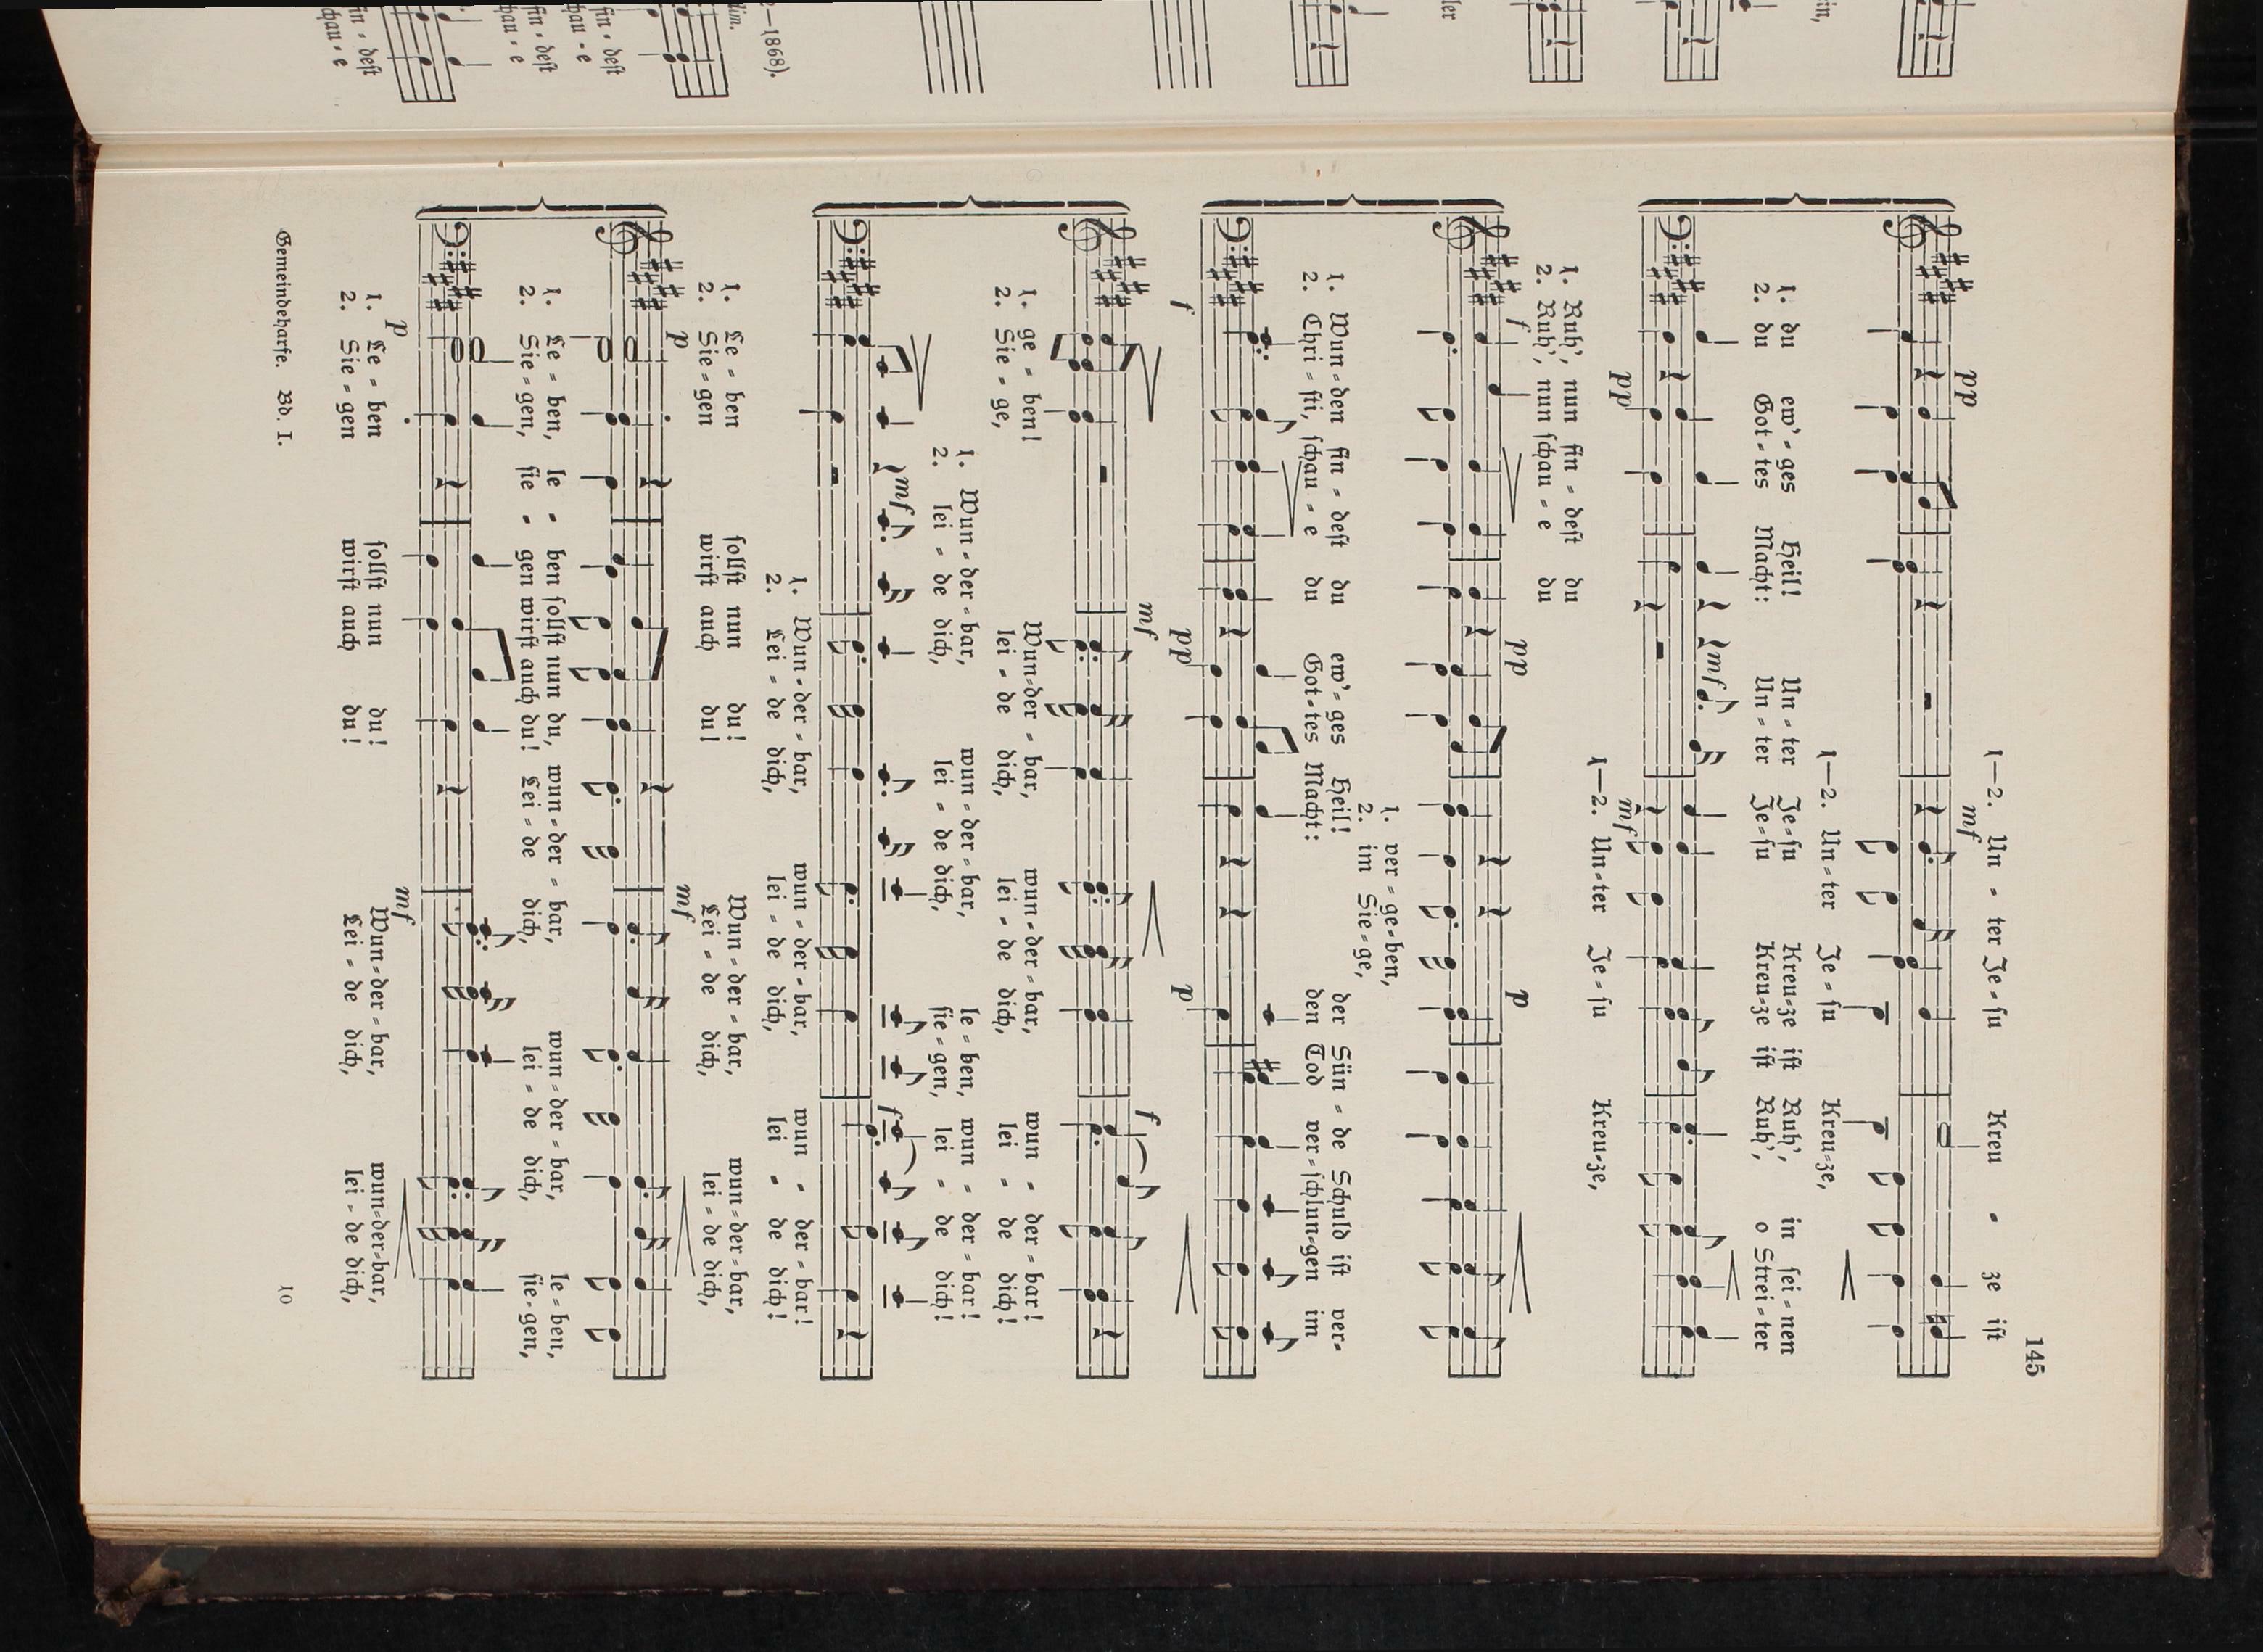 145
1—2. Un - ter Je - su Kreu - ze ist
mf
pp
1—2. Un - ter Je - su Kreu - ze,
1. du ew' - ges Heil! Un - ter Je - su Kreu - ze ist Ruh', in sei - nem
2. du Got - tes Macht: Un - ter Je - su Kreu - ze ist Ruh', o Strei - ter
mf
pp
mf
1—2. Un - ter Je - su Kreu - ze,
1. Ruh', nun fin - dest du
2. Ruh', nun schau - e du
f pp p
1. ver - ge - ben,
2. im Sie - ge,
1. Wun - den fin - dest du ew' - ges Heil! der Sün - de Schuld ist ver-
2. Chri - sti, schau - e du Got - tes Macht: den Tod ver - schlun - gen im
f pp p
mf f
1. ge - ben! Wun - der - bar, wun - der - bar, wun - der - bar!
2. Sie - ge, lei - de dich, lei - de dich, lei - de dich!
1. Wun - der - bar, wun - der - bar, le - ben, wun - der - bar!
2. lei - de dich, lei - de dich, sie - gen, lei - de dich!
mf f
1. Wun - der - bar, wun - der - bar, wun - der - bar!
2. Lei - de dich, lei - de dich, lei - de dich!
1. Le - ben sollst nun du! Wun - der - bar, wun - der - bar,
2. Sie - gen wirst auch du! Lei - de dich, lei - de dich,
p mf
1. Le - ben, le - ben sollst nun du, wun - der - bar, wun - der - bar, le - ben,
2. Sie - gen, sie - gen wirst auch du! Lei - de dich, lei - de dich, sie - gen,
p mf
1. Le - ben sollst nun du! Wun - der - bar, wun - der - bar,
2. Sie - gen wirst auch du! Lei - de dich, lei - de dich,
Gemeindeharfe. Bd. I. 10
in,
ler
—1868).
dim.
fin - dest
chau - e
fin - dest
chau - e
fin - dest
chau - e